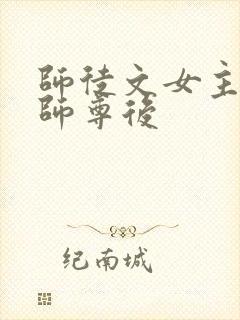 師徒文女主
師尊後
纪南城